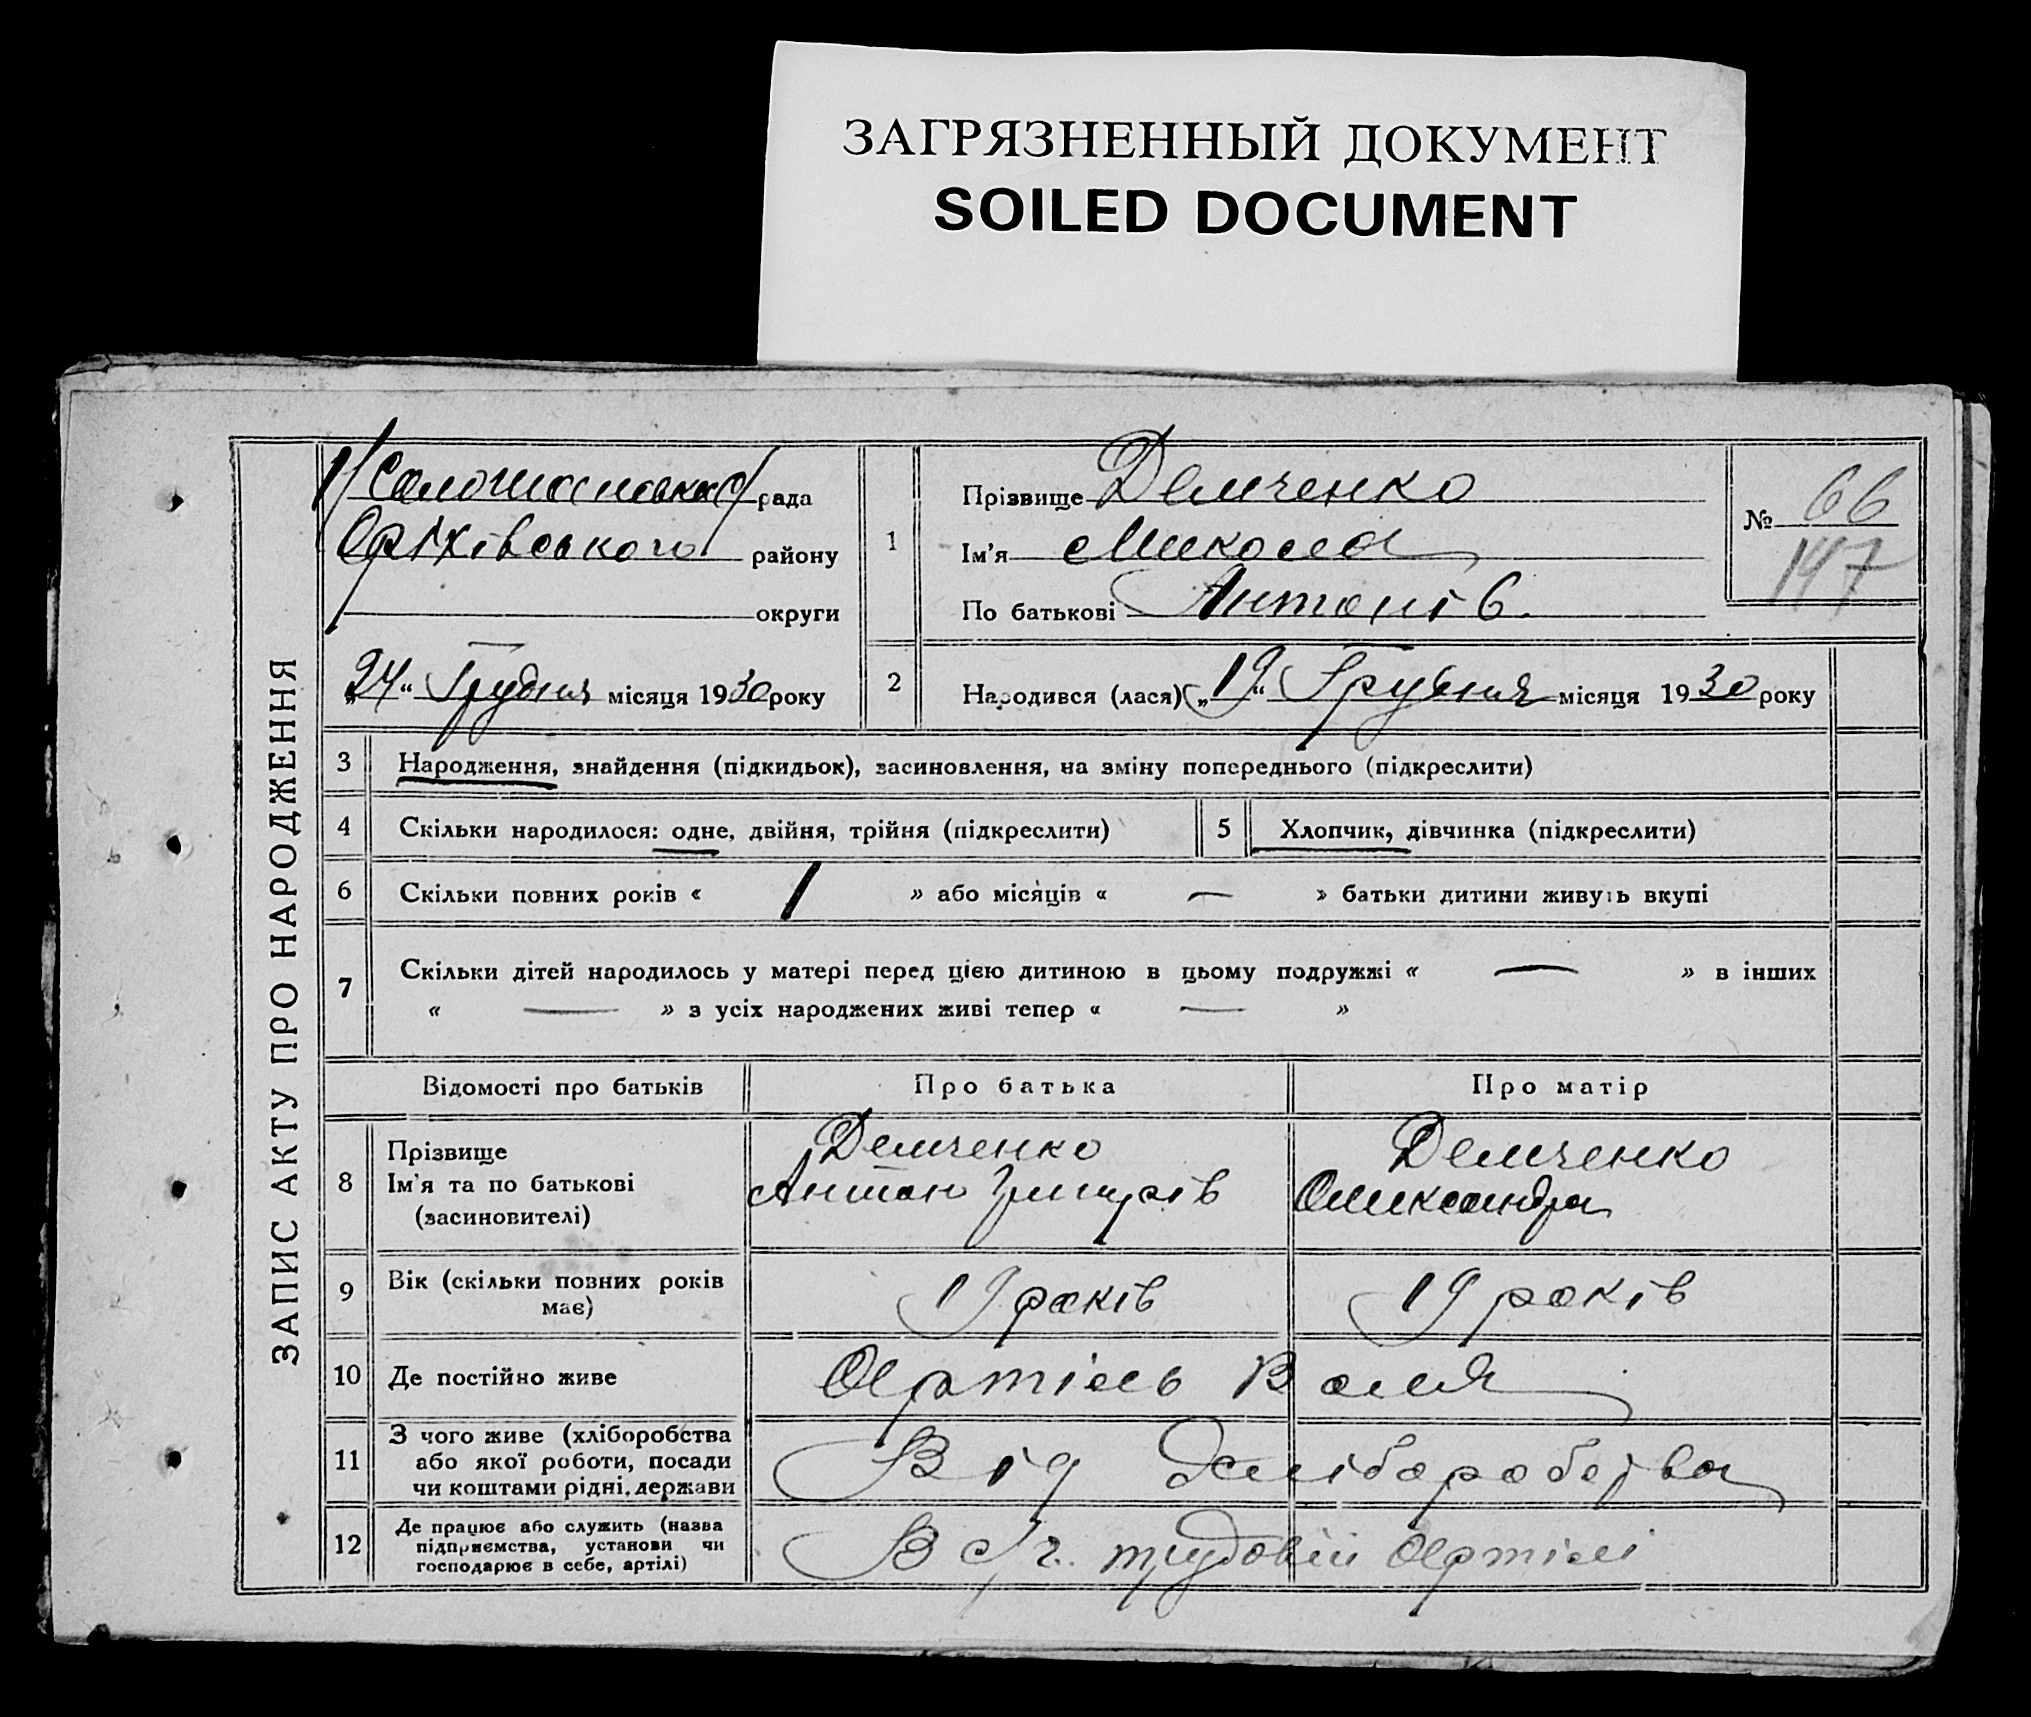 ЗАГРЯЗНЕННЫЙ ДОКУМЕНТ
SOILED DOCUMENT
ЗАПИС АКТУ ПРО НАРОДЖЕННЯ
рада
Оріхівського району
округи
„24“ Грудня місяця 1930 року
1
Прізвище Демченко
Ім’я Микола
По батькові Антонів.
№ 66
147
2
Народився (лася) „19“ Грудня місяця 1930 року
3 Народження, знайдення (підкидьок), засиновлення, на зміну попереднього (підкреслити)
4 Скільки народилося: одне, двійня, трійня (підкреслити) 5 Хлопчик, дівчинка (підкреслити)
6 Скільки повних років « 1 » або місяців « — » батьки дитини живуть вкупі
7 Скільки дітей народилось у матері перед цією дитиною в цьому подружжі « — » в інших
« — » з усіх народжених живі тепер « — »
Відомості про батьків Про батька Про матір
8 Прізвище
Ім’я та по батькові
(засиновителі)
Демченко
Антон Григорів
Демченко
Олександра
9 Вік (скільки повних років
має)
19 років 19 років
10 Де постійно живе Артіль Воля
11 З чого живе (хліборобства
або якої роботи, посади
чи коштами рідні, держави
Від хліборобства
12 Де працює або служить (назва
підприємства, установи чи
господарює в себе, артілі)
В с/г. трудовій Артілі